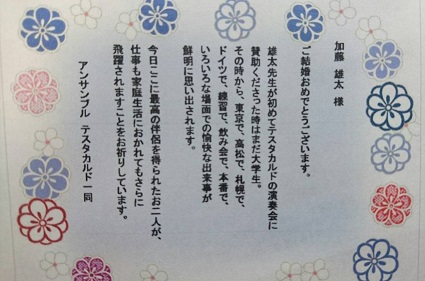 加藤 雄太 様
ご結婚おめでとうございます。
雄太先生が初めてテスタカルドの演奏会に
賛助くださった時はまだ大学生。
その時から、東京で、高松で、札幌で、
ドイツで、練習で、飲み会で、本番で、
いろいろな場面での愉快な出来事が
鮮明に思い出されます。
今日ここに最高の伴侶を得られたお二人が、
仕事も家庭生活におかれてもさらに
飛躍されますことをお祈りしています。
アンサンブル テスタカルド一同